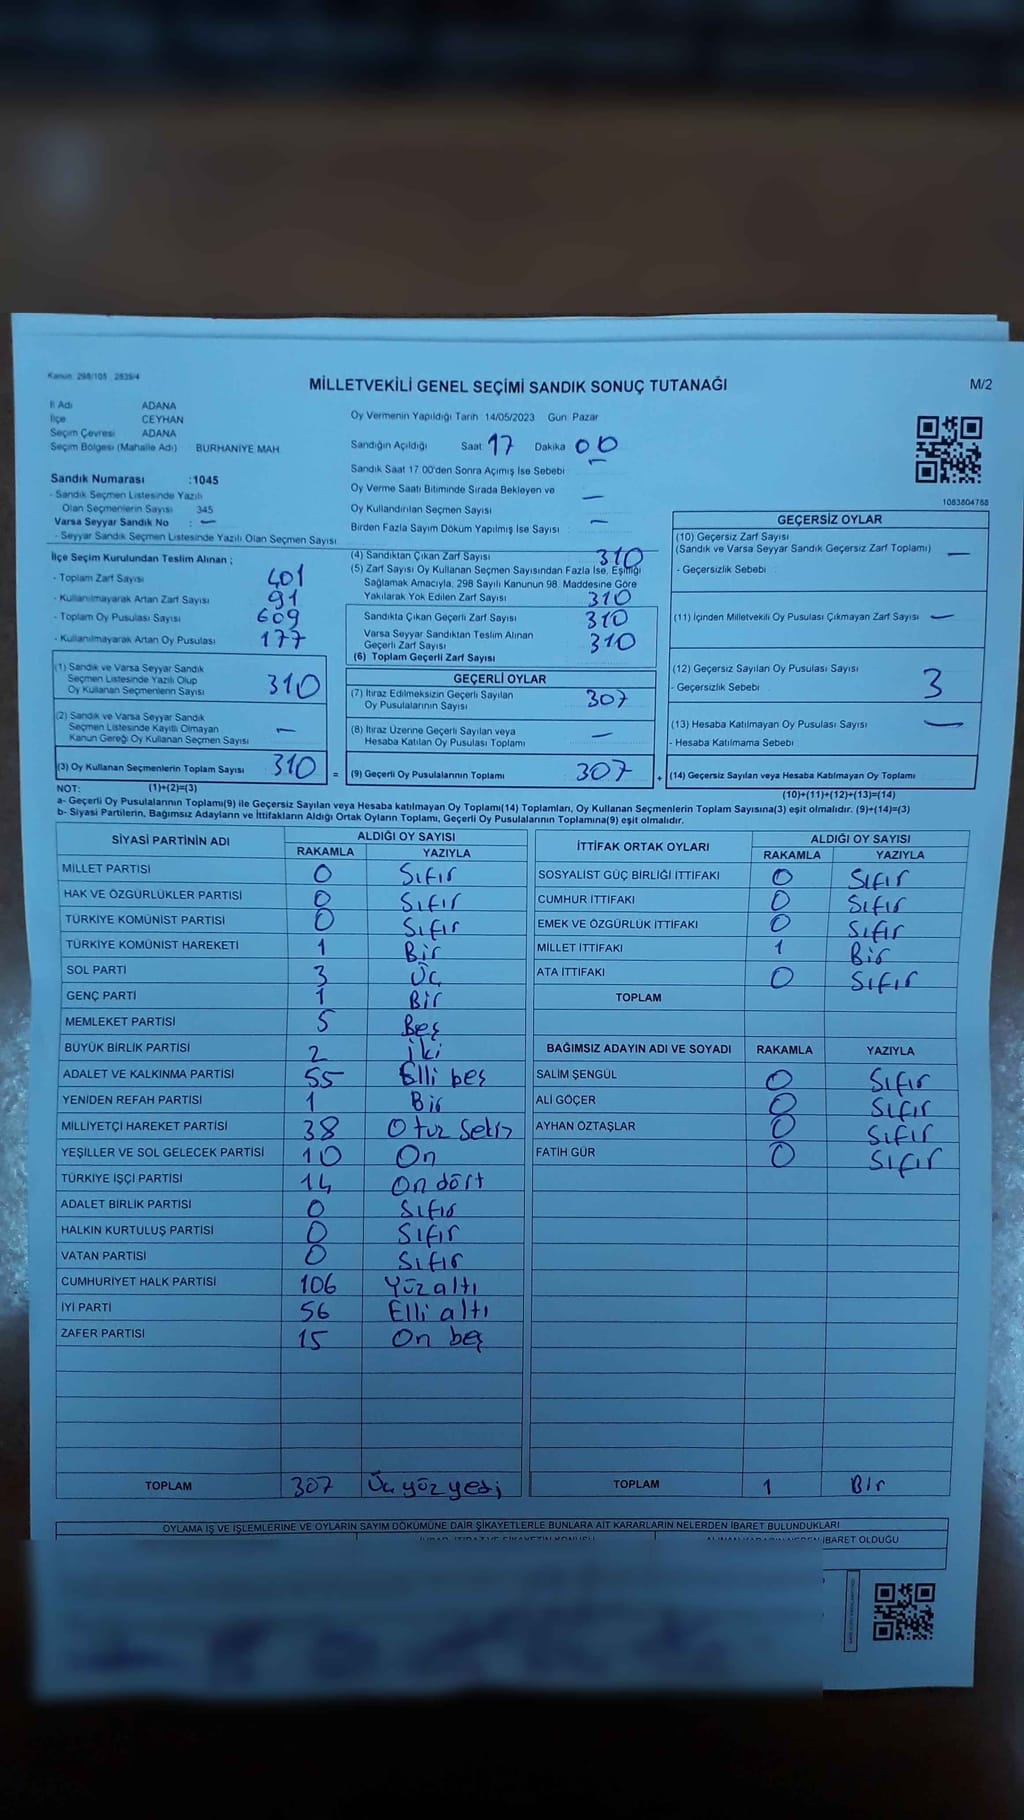 Kanun: 298/105 2839/4
MİLLETVEKİLİ GENEL SEÇİMİ SANDIK SONUÇ TUTANAĞI
M/2
İl Adı ADANA
İlçe CEYHAN
Seçim Çevresi ADANA
Seçim Bölgesi (Mahalle Adı) BURHANİYE MAH
Oy Vermenin Yapıldığı Tarih 14/05/2023 Gün: Pazar
Sandığın Açıldığı Saat 17 Dakika 00
Sandık Saat 17:00'den Sonra Açımış İse Sebebi -
Oy Verme Saati Bitiminde Sırada Bekleyen ve
Oy Kullandırılan Seçmen Sayısı -
Birden Fazla Sayım Döküm Yapılmış İse Sayısı -
Sandık Numarası :1045
- Sandık Seçmen Listesinde Yazılı
Olan Seçmenlerin Sayısı 345
Varsa Seyyar Sandık No : -
- Seyyar Sandık Seçmen Listesinde Yazılı Olan Seçmen Sayısı
1083804768
İlçe Seçim Kurulundan Teslim Alınan ;
- Toplam Zarf Sayısı 401
- Kullanılmayarak Artan Zarf Sayısı 91
- Toplam Oy Pusulası Sayısı 609
- Kullanılmayarak Artan Oy Pusulası 177
(1) Sandık ve Varsa Seyyar Sandık
Seçmen Listesinde Yazılı Olup
Oy Kullanan Seçmenlerin Sayısı 310
(2) Sandık ve Varsa Seyyar Sandık
Seçmen Listesinde Kayıtlı Olmayan
Kanun Gereği Oy Kullanan Seçmen Sayısı -
(3) Oy Kullanan Seçmenlerin Toplam Sayısı 310
(4) Sandıktan Çıkan Zarf Sayısı 310
(5) Zarf Sayısı Oy Kullanan Seçmen Sayısından Fazla İse, Eşitliği
Sağlamak Amacıyla, 298 Sayılı Kanunun 98. Maddesine Göre
Yakılarak Yok Edilen Zarf Sayısı 310
Sandıkta Çıkan Geçerli Zarf Sayısı 310
Varsa Seyyar Sandıktan Teslim Alınan
Geçerli Zarf Sayısı 310
(6) Toplam Geçerli Zarf Sayısı
GEÇERLİ OYLAR
(7) İtiraz Edilmeksizin Geçerli Sayılan
Oy Pusulalarının Sayısı 307
(8) İtiraz Üzerine Geçerli Sayılan veya
Hesaba Katılan Oy Pusulası Toplamı -
= (9) Geçerli Oy Pusulalarının Toplamı 307
GEÇERSİZ OYLAR
(10) Geçersiz Zarf Sayısı
(Sandık ve Varsa Seyyar Sandık Geçersiz Zarf Toplamı) -
- Geçersizlik Sebebi
(11) İçinden Milletvekili Oy Pusulası Çıkmayan Zarf Sayısı -
(12) Geçersiz Sayılan Oy Pusulası Sayısı
- Geçersizlik Sebebi 3
(13) Hesaba Katılmayan Oy Pusulası Sayısı -
- Hesaba Katılmama Sebebi
+ (14) Geçersiz Sayılan veya Hesaba Katılmayan Oy Toplamı
NOT: (1)+(2)=(3)
(10)+(11)+(12)+(13)=(14)
a- Geçerli Oy Pusulalarının Toplamı(9) ile Geçersiz Sayılan veya Hesaba katılmayan Oy Toplamı(14) Toplamları, Oy Kullanan Seçmenlerin Toplam Sayısına(3) eşit olmalıdır. (9)+(14)=(3)
b- Siyasi Partilerin, Bağımsız Adayların ve İttifakların Aldığı Ortak Oyların Toplamı, Geçerli Oy Pusulalarının Toplamına(9) eşit olmalıdır.
SİYASİ PARTİNİN ADI ALDIĞI OY SAYISI
RAKAMLA YAZIYLA
MİLLET PARTİSİ 0 Sıfır
HAK VE ÖZGÜRLÜKLER PARTİSİ 0 Sıfır
TÜRKİYE KOMÜNİST PARTİSİ 0 Sıfır
TÜRKİYE KOMÜNİST HAREKETİ 1 Bir
SOL PARTİ 3 Üç
GENÇ PARTİ 1 Bir
MEMLEKET PARTİSİ 5 Beş
BÜYÜK BİRLİK PARTİSİ 2 İki
ADALET VE KALKINMA PARTİSİ 55 Elli beş
YENİDEN REFAH PARTİSİ 1 Bir
MİLLİYETÇİ HAREKET PARTİSİ 38 Otuz Sekiz
YEŞİLLER VE SOL GELECEK PARTİSİ 10 On
TÜRKİYE İŞÇİ PARTİSİ 14 On dört
ADALET BİRLİK PARTİSİ 0 Sıfır
HALKIN KURTULUŞ PARTİSİ 0 Sıfır
VATAN PARTİSİ 0 Sıfır
CUMHURİYET HALK PARTİSİ 106 Yüz altı
İYİ PARTİ 56 Elli altı
ZAFER PARTİSİ 15 On beş
TOPLAM 307 Üç yüz yedi
İTTİFAK ORTAK OYLARI ALDIĞI OY SAYISI
RAKAMLA YAZIYLA
SOSYALİST GÜÇ BİRLİĞİ İTTİFAKI 0 Sıfır
CUMHUR İTTİFAKI 0 Sıfır
EMEK VE ÖZGÜRLÜK İTTİFAKI 0 Sıfır
MİLLET İTTİFAKI 1 Bir
ATA İTTİFAKI 0 Sıfır
TOPLAM
BAĞIMSIZ ADAYIN ADI VE SOYADI RAKAMLA YAZIYLA
SALİM ŞENGÜL 0 Sıfır
ALİ GÖÇER 0 Sıfır
AYHAN ÖZTAŞLAR 0 Sıfır
FATİH GÜR 0 Sıfır
TOPLAM 1 Bir
OYLAMA İŞ VE İŞLEMLERİNE VE OYLARIN SAYIM DÖKÜMÜNE DAİR ŞİKAYETLERLE BUNLARA AİT KARARLARIN NELERDEN İBARET BULUNDUKLARI
İBARET OLDUĞU